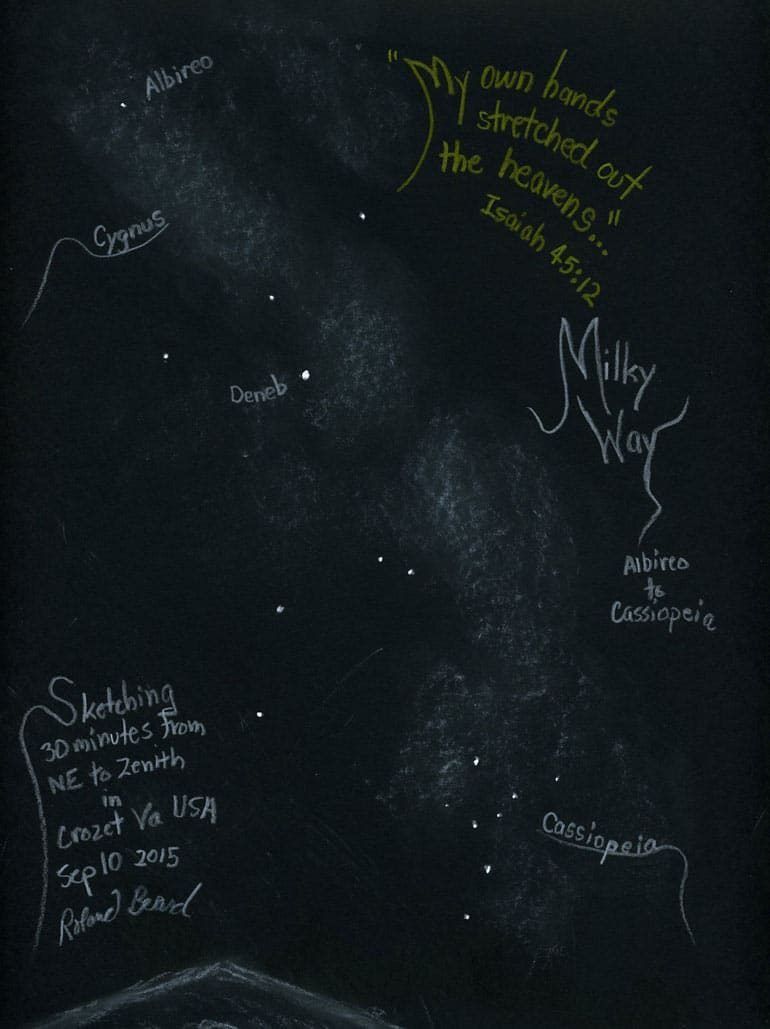 Albireo
"My own hands
stretched out
the heavens..."
Isaiah 45:12
Cygnus
Milky
Way
Deneb
Albireo
to
Cassiopeia
Sketching
30 minutes from
NE to Zenith
in
Crozet Va USA
Sep 10 2015
Roland Beard
Cassiopeia